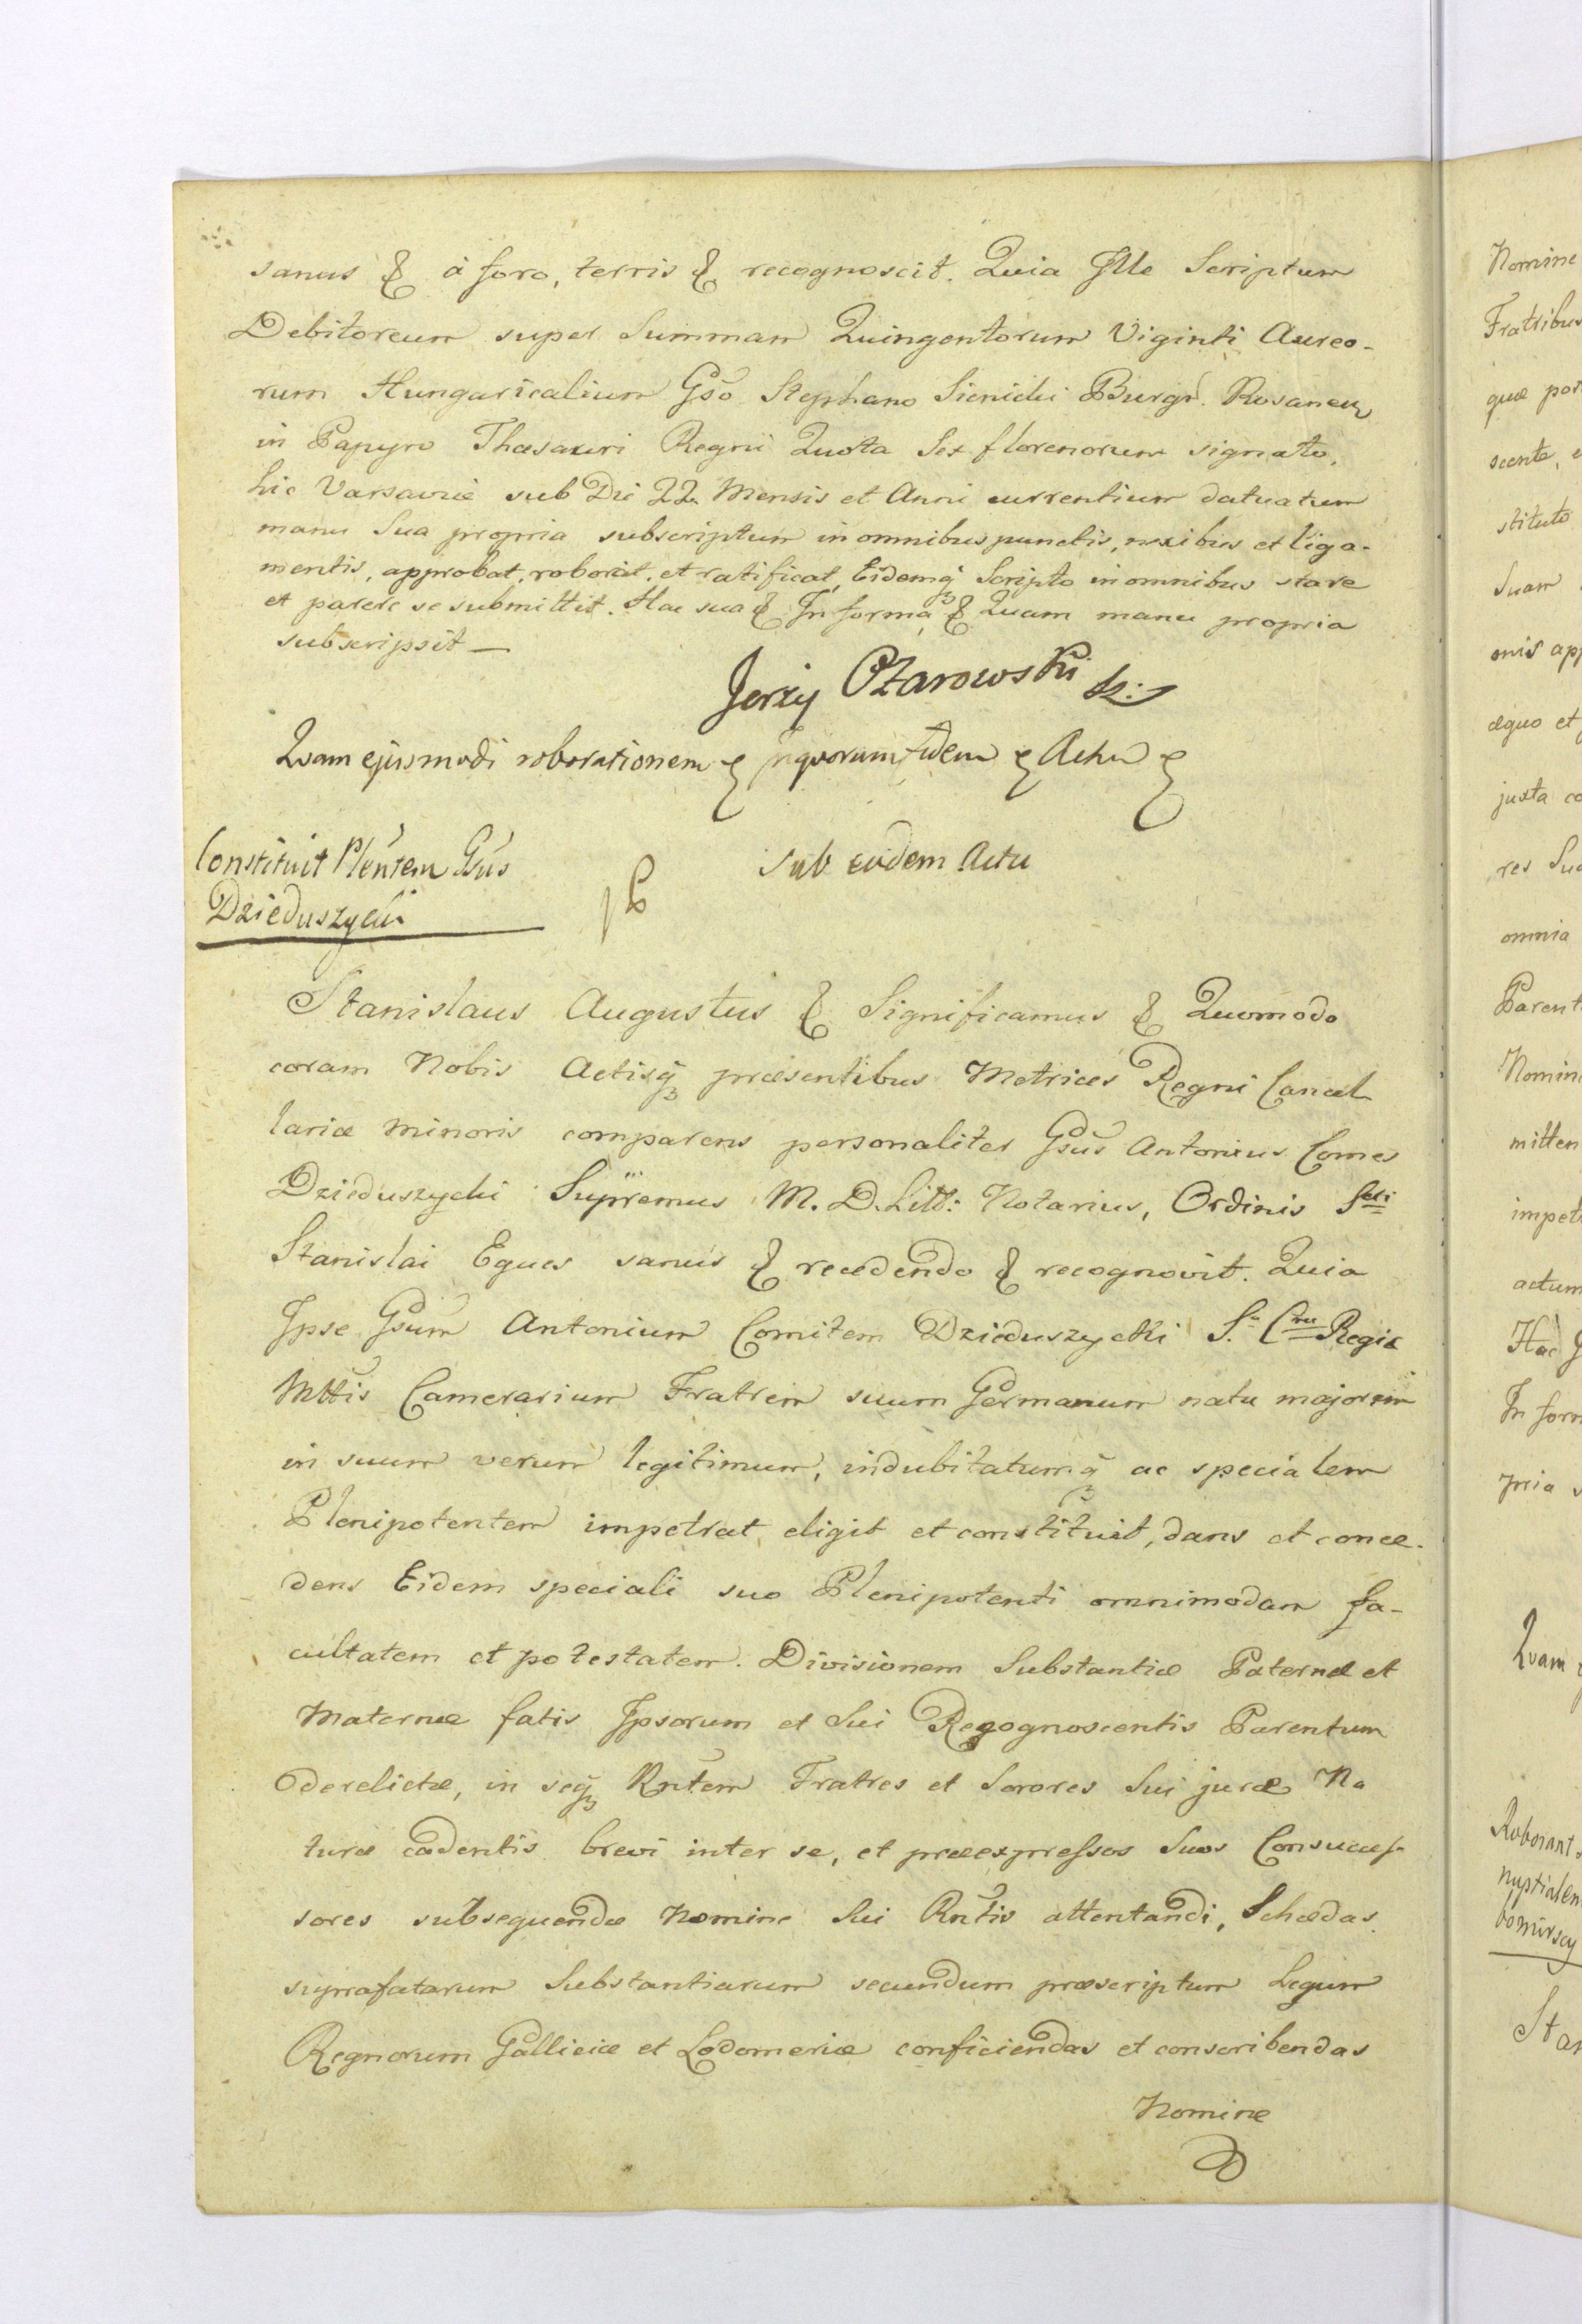 sanus & à foro, terris & recognoscit. Quia Ille Scriptum
Debitoreum super Summam Quingentorum Viginti Aureo-
rum Hungaricalium Gso Stephano Sienicki Burgr. Rosanen
in Papyro Thesauri Regni Quota Sex florenorum signato,
hic Varsaviæ sub Die 22. Mensis et Anni currentium datuatum
manu Sua propria subscriptum in omnibus punctis, nexibus et liga-
mentis, approbat, roborat, et ratificat, Eidemq Scripto in omnibus stare
et parere se submittit. Hac sua & In forma & Quam manu propria
subscripsit —
Jerzy Ożarowski
Quam ejusmodi roborationem & inquorum fidem & Actu &
Constituit Plentem Gsus
Dzieduszycki
Sub eodem Actu
Stanislaus Augustus & Significamus & Quomodo
coram Nobis Actisq præsentibus Metrices Regni Cancel
lariæ Minoris comparens personaliter Gsus Antonius Comes
Dzieduszycki Supremus M. D. Litt: Notarius, Ordinis Scti
Stanislai Eques sanus & recedendo & recognovit. Quia
Ipse Gsum Antonium Comitem Dzieduszycki S. Cræ Regiæ
Mttis Camerarium Fratrem suum Germanum natu majorem
in suum verum legitimum, indubitatumq ac specialem
Plenipotentem impetrat eligit et constituit, dans et conce-
dens Eidem speciali suo Plenipotenti omnimodam fa-
cultatem et potestatem. Divisionem Substantiæ Paternæ et
Maternæ fatis Ipsorum et Sui Recognoscentis Parentum
derelictæ, in seq Rntem Fratres et Sorores Sui jure Na
turæ cadentis brevi inter se, et præexpressos Suos Consucces-
sores subsequendæ Nomine Sui Rntis attentandi, Schedas
suprafatarum Substantiarum secundum præscriptum Legum
Regnorum Galliciæ et Lodomeriæ conficiendas et conscribendas
Nomine